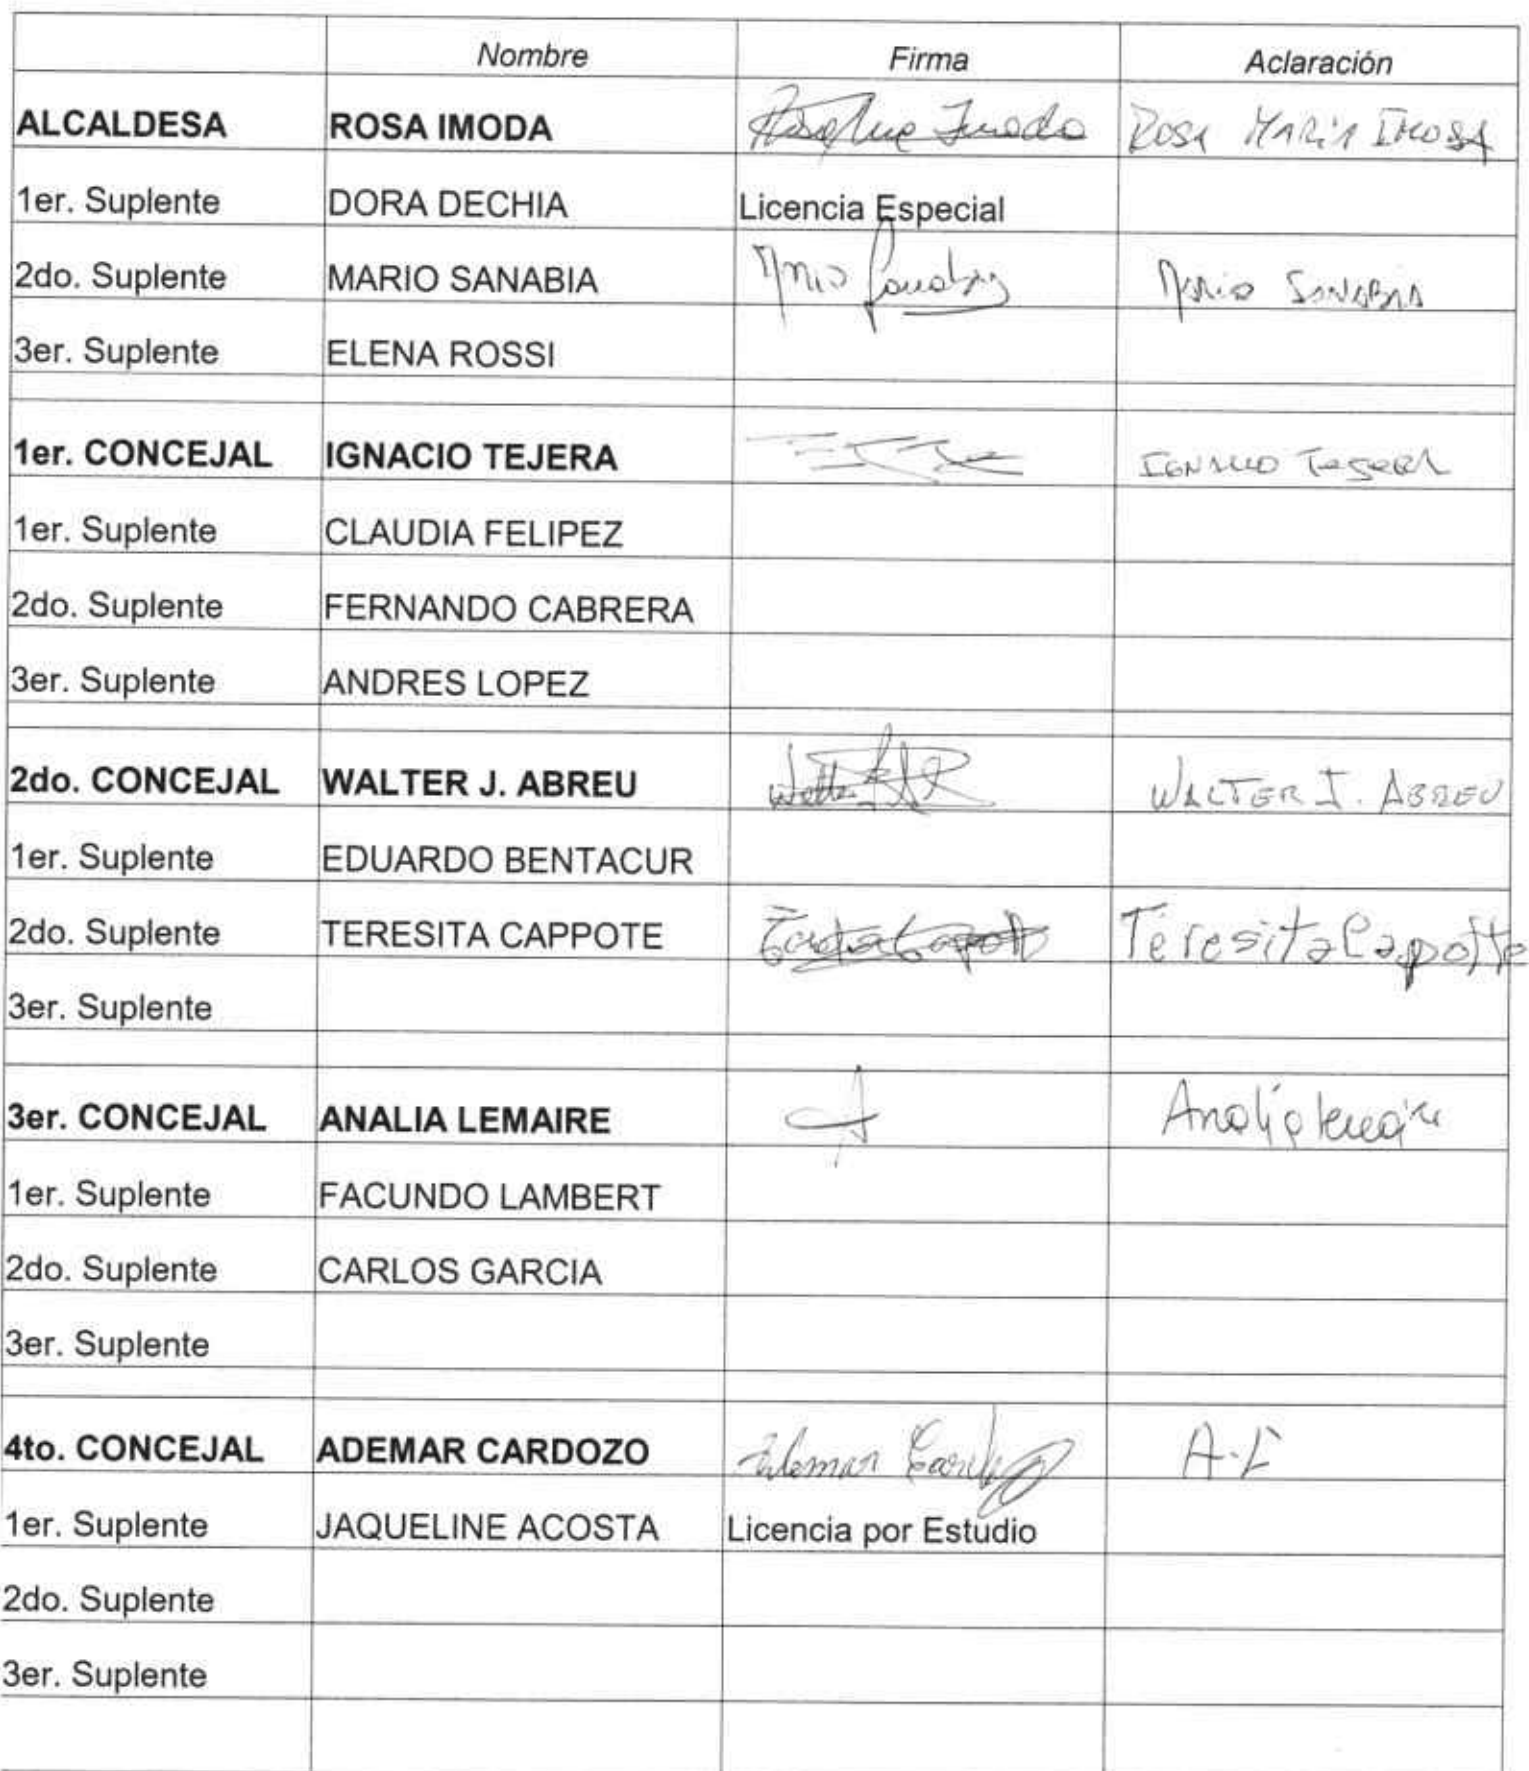 Nombre Firma Aclaración
ALCALDESA ROSA IMODA Rosa Imoda ROSA MARÍA IMODA
1er. Suplente DORA DECHIA Licencia Especial
2do. Suplente MARIO SANABIA Mario Sanabia MARIO SANABIA
3er. Suplente ELENA ROSSI
1er. CONCEJAL IGNACIO TEJERA IGNACIO TEJERA
1er. Suplente CLAUDIA FELIPEZ
2do. Suplente FERNANDO CABRERA
3er. Suplente ANDRES LOPEZ
2do. CONCEJAL WALTER J. ABREU Walter WALTER J. ABREU
1er. Suplente EDUARDO BENTACUR
2do. Suplente TERESITA CAPPOTE Teresita Capotte
3er. Suplente
3er. CONCEJAL ANALIA LEMAIRE A Analia Lemaire
1er. Suplente FACUNDO LAMBERT
2do. Suplente CARLOS GARCIA
3er. Suplente
4to. CONCEJAL ADEMAR CARDOZO Ademar Cardozo A.C
1er. Suplente JAQUELINE ACOSTA Licencia por Estudio
2do. Suplente
3er. Suplente